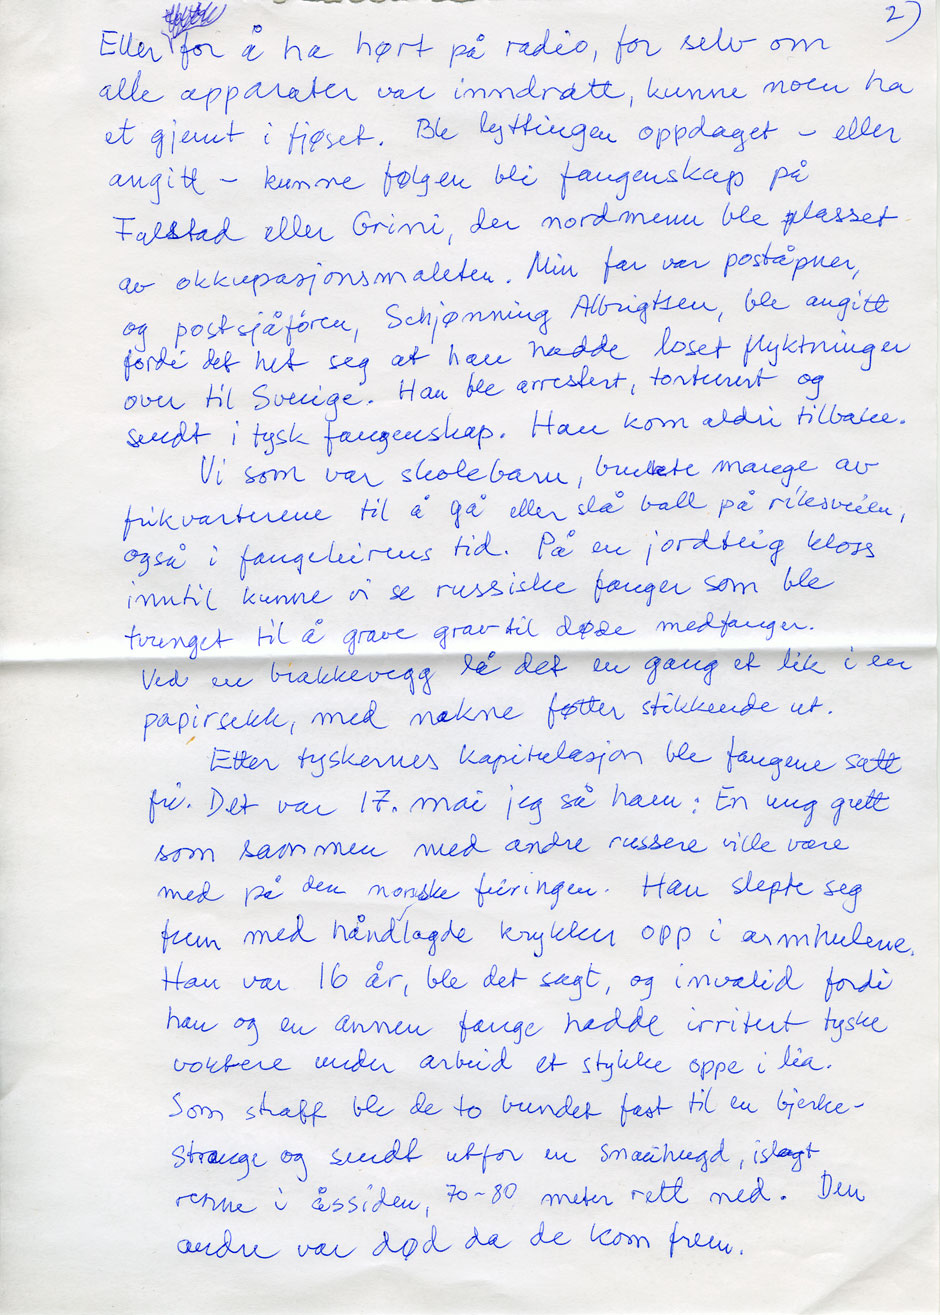 2)
Eller for å ha hørt på radio, for selv om
alle apparater var inndratt, kunne noen ha
et gjemt i fjøset. Ble lyttingen oppdaget – eller
angitt – kunne følgen bli fangenskap på
Falstad eller Grini, der nordmenn ble plasset
av okkupasjonsmakten. Min far var poståpner,
og postsjåfören, Schjønning Albrigtsen, ble angitt
fordi det het seg at han hadde loset flyktninger
over til Sverige. Han ble arrestert, torturert og
sendt i tysk fangenskap. Han kom aldri tilbake.
Vi som var skolebarn, brukte mange av
frikvarterene til å gå eller slå ball på riksveien,
også i fangeleirens tid. På en jordteig kloss
inntil kunne vi se russiske fanger som ble
tvunget til å grave grav til døde medfanger.
Ved en brakkevegg lå det en gang et lik i en
papirsekk, med nakne føtter stikkende ut.
Etter tyskernes kapitulasjon ble fangene satt
fri. Det var 17. mai jeg så ham: En ung gutt
som sammen med andre russere ville være
med på den norske feiringen. Han slepte seg
frem med håndlagde krykker opp i armhulene.
Han var 16 år, ble det sagt, og invalid fordi
han og en annen fange hadde irritert tyske
voktere under arbeid et stykke oppe i lia.
Som straff ble de to bundet fast til en bjerke-
strange og sendt utfor en snauhugd, islagt
renne i åssiden, 70–80 meter rett ned. Den
andre var død da de kom frem.